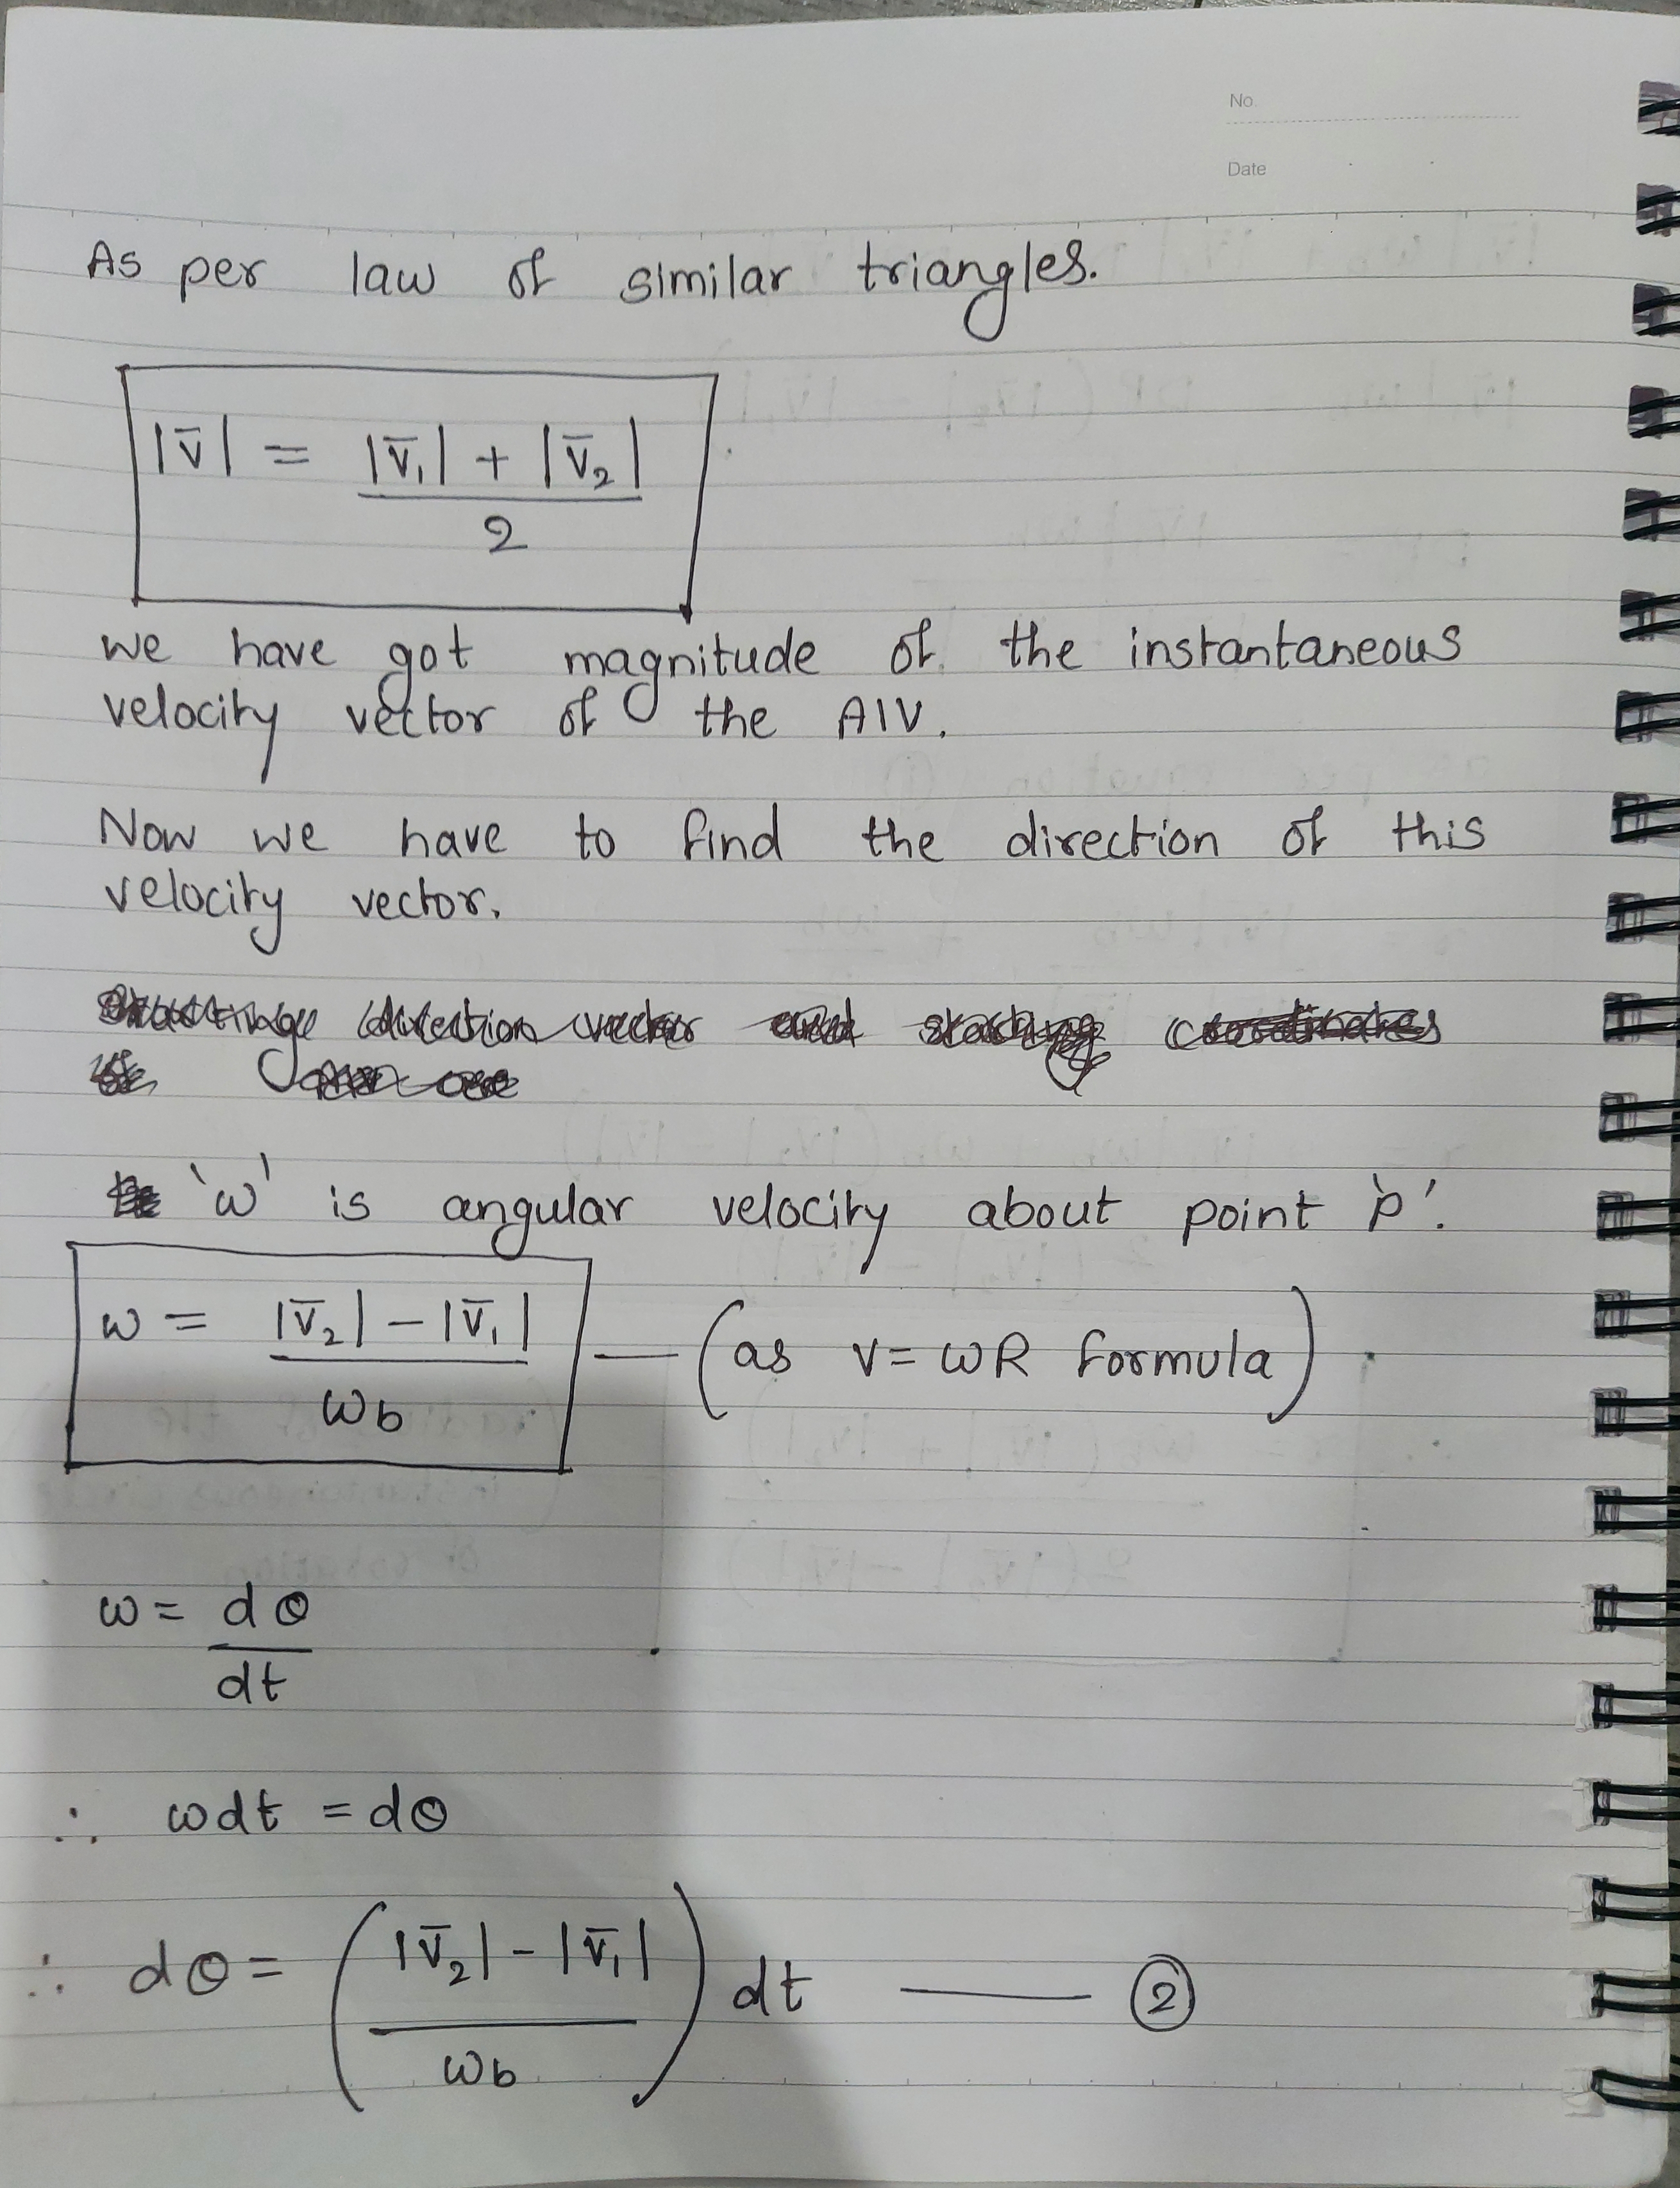 No.
Date
As per law of similar triangles.
|v̄| = |v̄₁| + |v̄₂| / 2
we have got magnitude of the instantaneous
velocity vector of the AIV.
Now we have to find the direction of this
velocity vector.
'ω' is angular velocity about point 'p'.
ω = |v̄₂| - |v̄₁| / ωb — (as v = ωR formula)
ω = dθ / dt
∴ ωdt = dθ
∴ dθ = (|v̄₂| - |v̄₁| / ωb) dt — ②